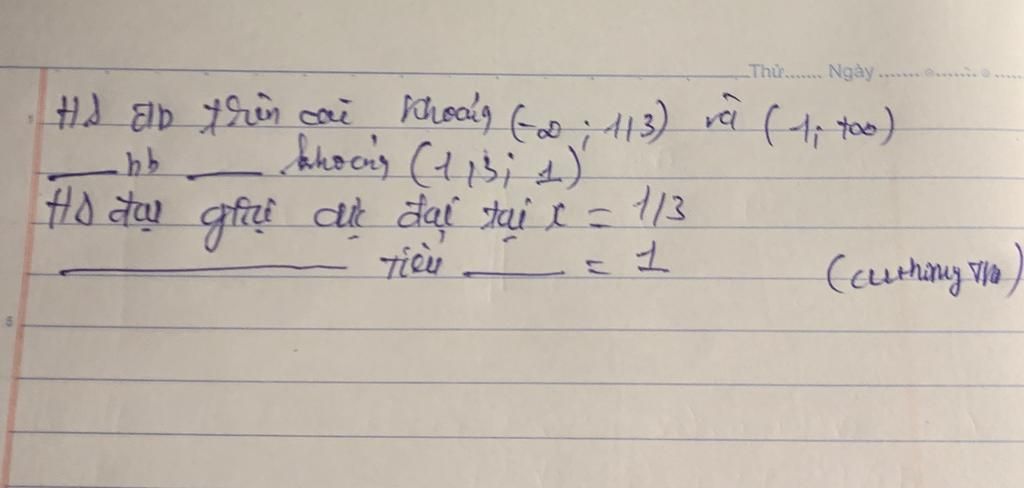 Thứ....... Ngày...............
HS ĐB trên các khoảng (-∞ ; 1/3) và (1; +∞)
___ nb ___ khoảng (1/3; 1)
HS đạt giá trị cực đại tại x = 1/3
___ tiểu ___ = 1
5